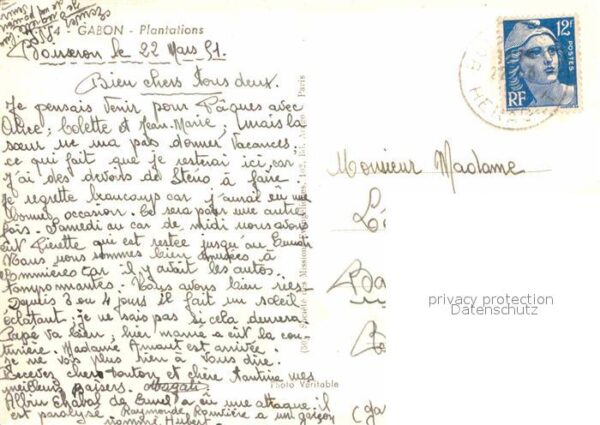 4 - GABON - Plantations
le 22 Mars 51.
Bien chers tous deux.
Je pensais venir pour Pâques avec
Alice, Colette et Jean-Marie, mais la
sœur ne ma pas donner vacances,
ce qui fait que je restrai ici, car
j'ai des devoirs de Sténo à faire.
Je regrette beaucoup car j'aurai eu une
bonne occasion. Ce sera pour une autre
fois. Samedi au car de midi nous avons
eut Pierette qui est restée jusqu'au
Nous nous sommes bien amusées à
car il y avait les autos.
tamponnantes. Nous avons bien ries
Depuis 3 ou 4 jours il fait un soleil
éclatant; je ne sais pas si cela durera
Papé va bien, hier mamé a eut la cou
turière. Madame est arrivée.
je ne vois plus rien à vous dire.
Recevez chers tonton et chère tantine mes
meilleurs baisers. Magali
Albin Chabal de a eu une attaque il
est paralysé Raymonde a un garçon
nommé Hubert.
Société des Missions Evangéliques, 102, Bd. Arago Paris
Photo Véritable
12F
POSTES
RF
Monsieur Madame
privacy protection
Datenschutz